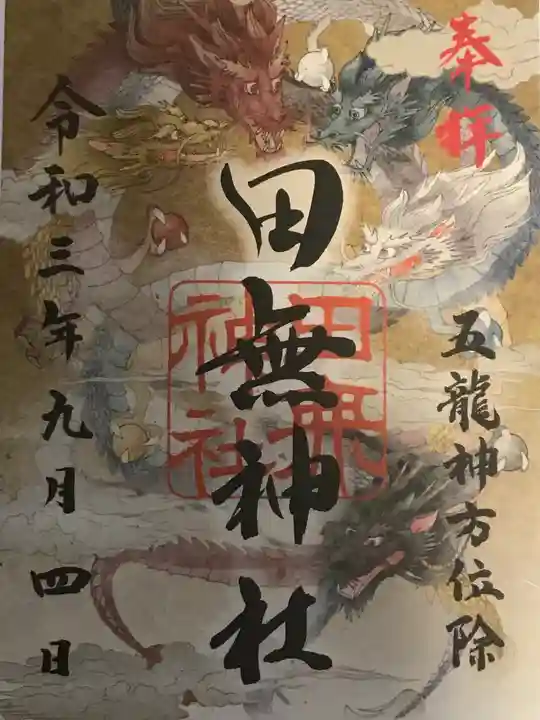 奉拝
五龍神方位除
田無神社
田無
神社
令和三年九月四日